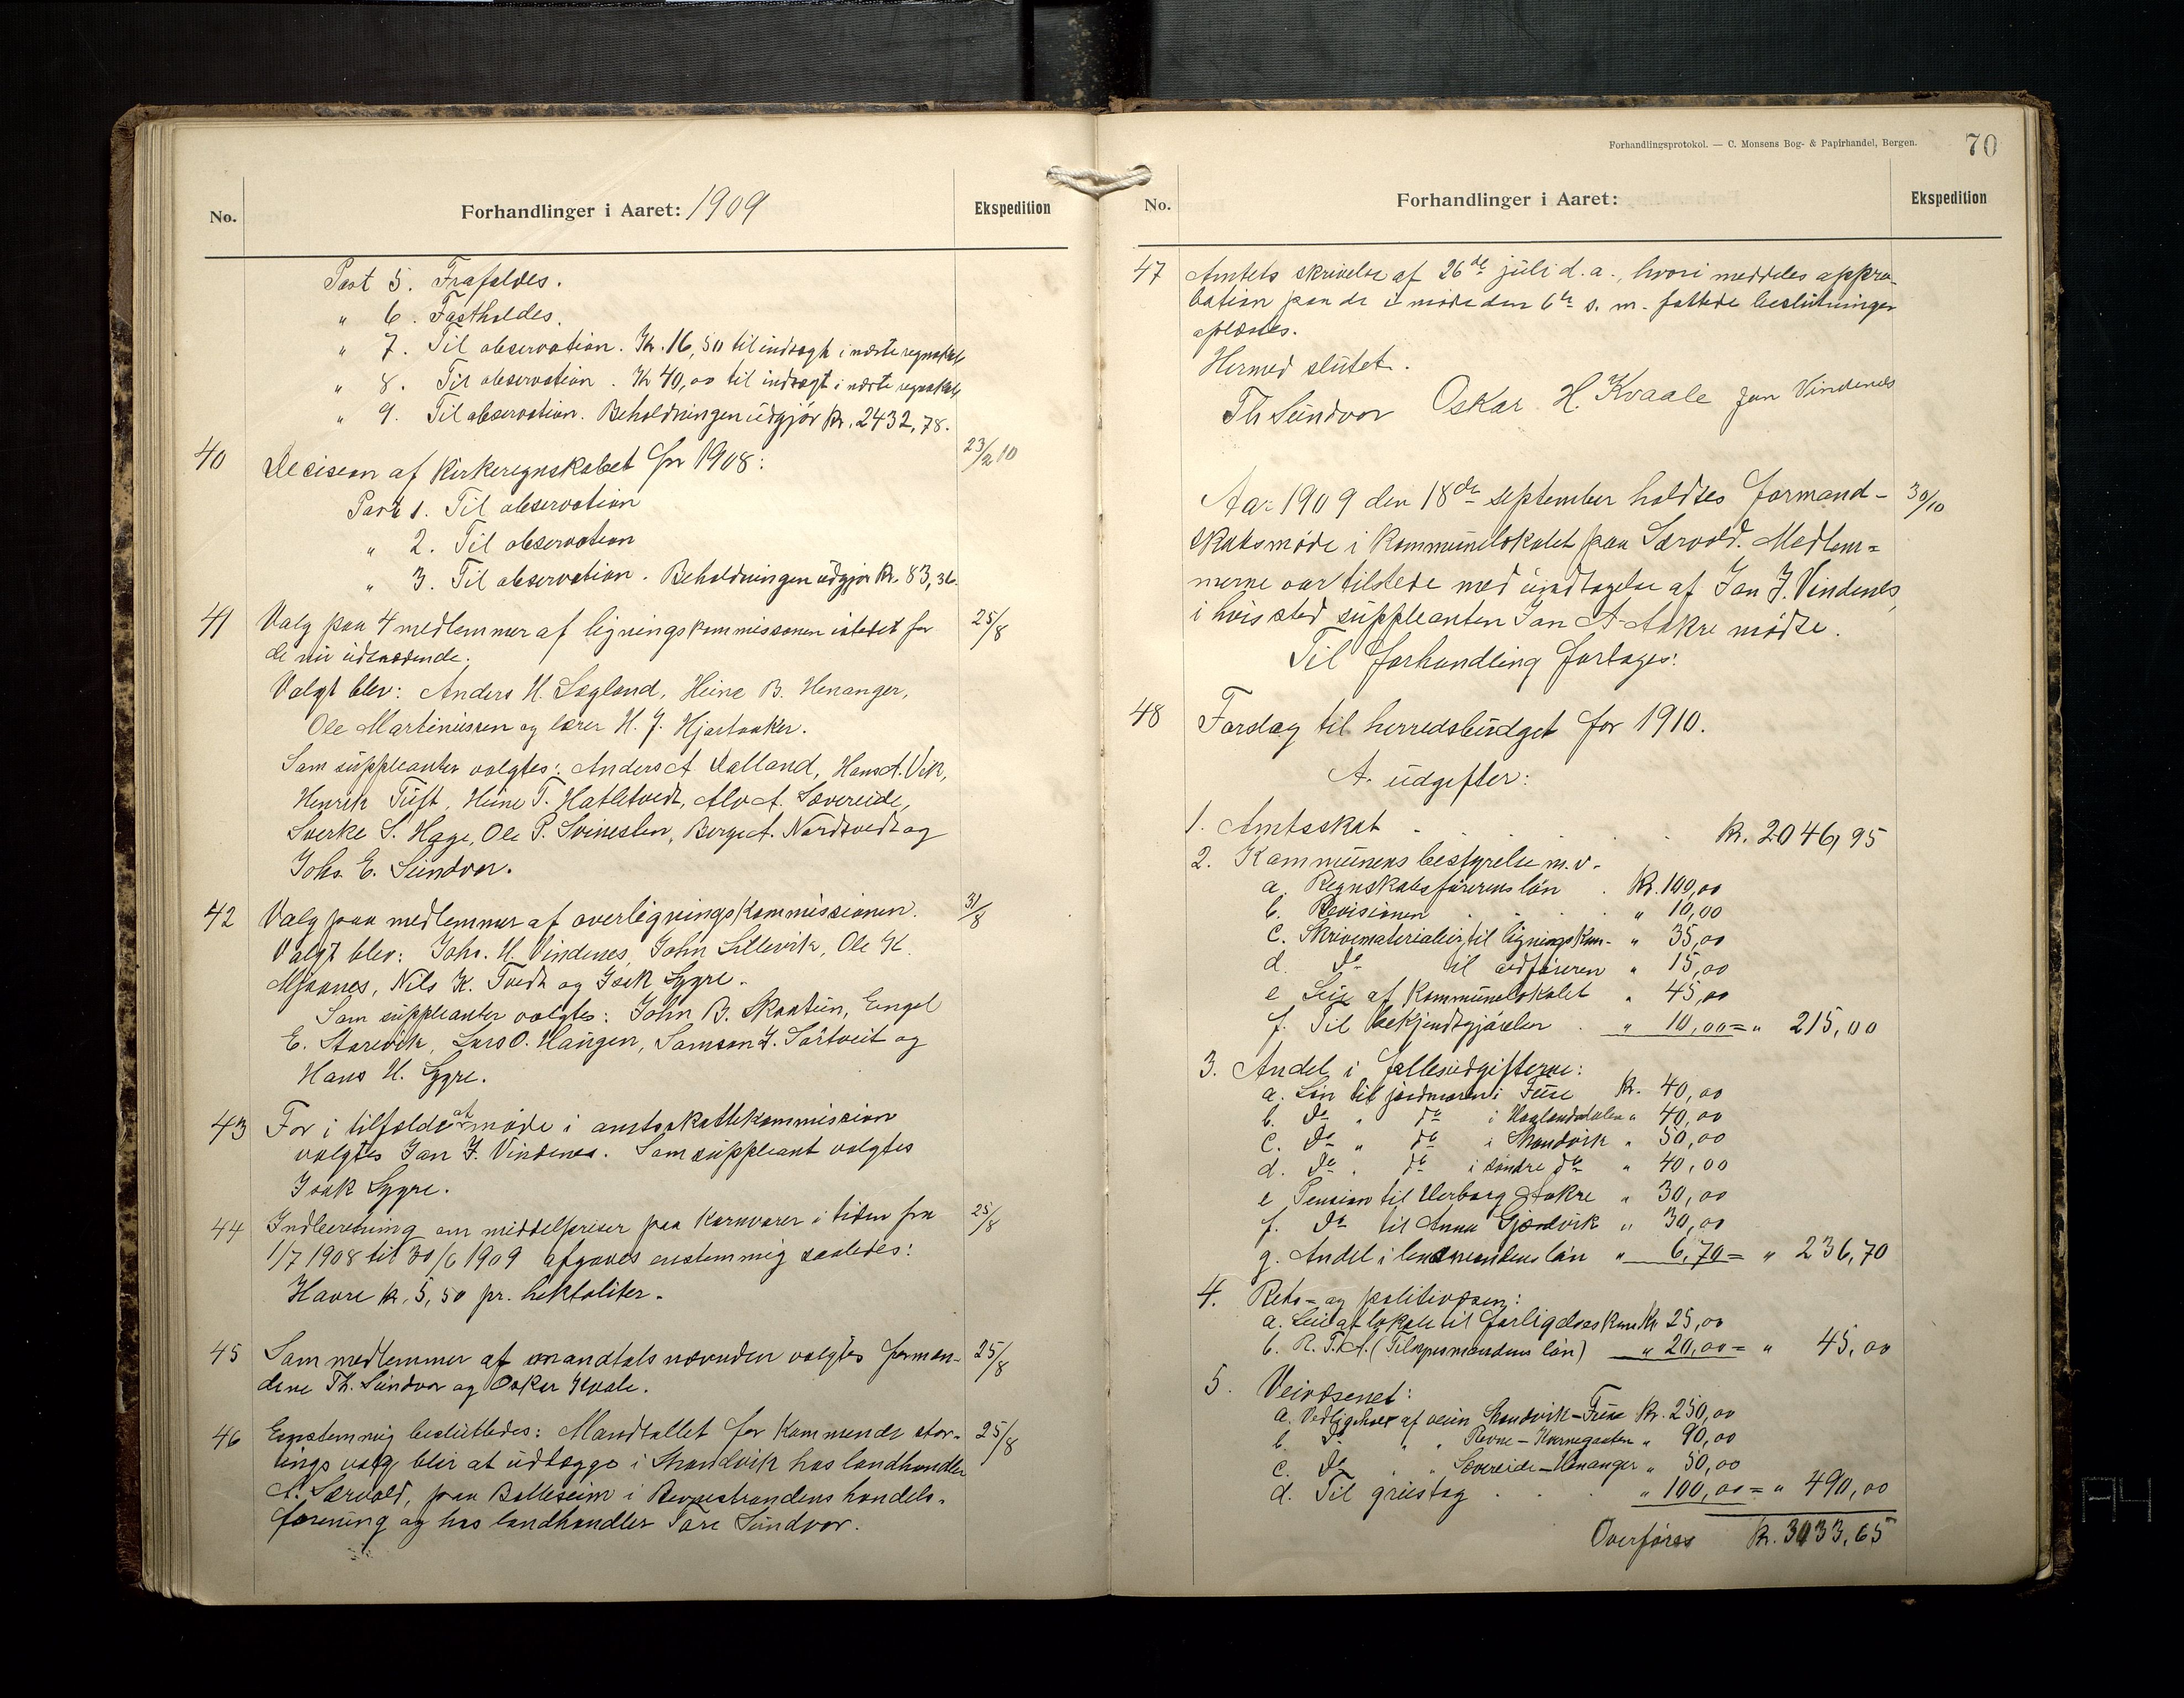 No. Forhandlinger i Aaret: 1909 Ekspedition
Post 5. Frafaldes.
" 6. Fastholdes.
" 7. Til observation. Kr. 16,50 til indtægt i næste regnskab
" 8. Til observation. Kr 40,00 til indtægt i næste regnskab
" 9. Til observation. Beholdningen udgjør kr. 2432,78.
40 Decision af kirkeregnskabet for 1908: 23/2 10
Post 1. Til observation
" 2. Til observation
" 3. Til observation. Beholdningen udgjør kr. 83,36.
41 Valg paa 4 medlemmer af ligningskommissionen istedet for 25/8
de nu udtrædende.
Valgt blev: Anders H. Løgland, Heine B. Henanger,
Ole Martinussen og lærer H. J. Hjartaaker.
Som suppleanter valgtes: Anders A Dalland, Hans A. Vik,
Henrik Tuft, Heine T. Hatletvedt, Alv A. Sævereide,
Sverke S. Hage, Ole P. Svineslen, Berge A. Nordtvedt og
Johs. E. Sundvor.
42 Valg paa medlemmer af overligningskommissionen. 31/8
Valgt blev: Johs. H. Vindenes, John Lillevik, Ole K.
Mjaanes, Nils K. Tvedt og Isak Lygre.
Som suppleanter valgtes: John B. Skaatun, Engel
E. Storevik, Lars O. Haugen, Samson J. Sørtveit og
Hans H. Lygre.
43 For i tilfælde at møde i amtsskattekommission
valgtes Jan J. Vindenes. Som suppleant valgtes
Isak Lygre.
44 Indberetning om middelpriser paa kornvarer i tiden fra 25/8
1/7 1908 til 30/6 1909 afgaves enstemmig saaledes:
Havre kr. 5,50 pr. hektoliter.
45 Som medlemmer af mandtalsnævnden valgtes forman- 25/8
dene Th. Sundvor og Oskar Kvale.
46 Enstemmig besluttedes: Mandtallet for kommende stor- 25/8
tings valg blir at udlægge i Strandvik hos landhandler
A. Særvold, paa Balleseim i Revnestrandens handels-
forening og hos landhandler Tore Sundvor.
Forhandlingsprotokol. — C. Monsens Bog- & Papirhandel, Bergen. 70
No. Forhandlinger i Aaret: Ekspedition
47 Amtets skrivelse af 26de juli d. a., hvori meddeles appro-
bation paa de i møde den 6te s. m. fattede beslutninger
oplæstes.
Hermed sluttet.
Th Sundvor Oskar H. Kvaale Jan Vindenes
Aar 1909 den 18de september holdtes formand- 30/10
skabsmøde i kommunelokalet paa Særvold. Medlem-
merne var tilstede med undtagelse af Jan J. Vindenes,
i hvis sted suppleanten Jan A. Aakre mødte.
Til forhandling fortages:
48 Forslag til herredsbudget for 1910.
A. udgifter:
1. Amtsskat . . . . kr. 2046,95
2. Kommunens bestyrelse m.v.
a. Regnskabsførerens løn . kr. 100,00
b. Revisionen . . . " 10,00
c. Skrivematerialier til ligningskom- " 35,00
d. do til ordføreren " 15,00
e Leie af kommunelokalet " 45,00
f. Til bekjendtgjørelser . " 10,00 = " 215,00
3. Andel i fællesudgifterne:
a. Løn til jordmoren i Fuse kr. 40,00
b. do " do i Haalandsdalen " 40,00
c. do " do i Strandvik " 50,00
d. do " do i søndre do " 40,00
e Pension til Herborg Aakre " 30,00
f. do til Anna Gjøsdvik " 30,00
g. Andel i lensmandens løn " 6,70 = " 236,70
4. Rets- og politivæsen:
a. Leie af lokale til forligelseskom Kr 25,00
b. R. T. A. (Tilsynsmandens løn) " 20,00 = " 45,00
5. Veivæsenet:
a. Vedligehold af veien Strandvik–Fuse kr. 250,00
b. do " " Revne–Kvernegaten " 90,00
c. do " " Sævereide–Henanger " 50,00
d. Til grustag . . " 100,00 = " 490,00
Overføres kr. 3033,65